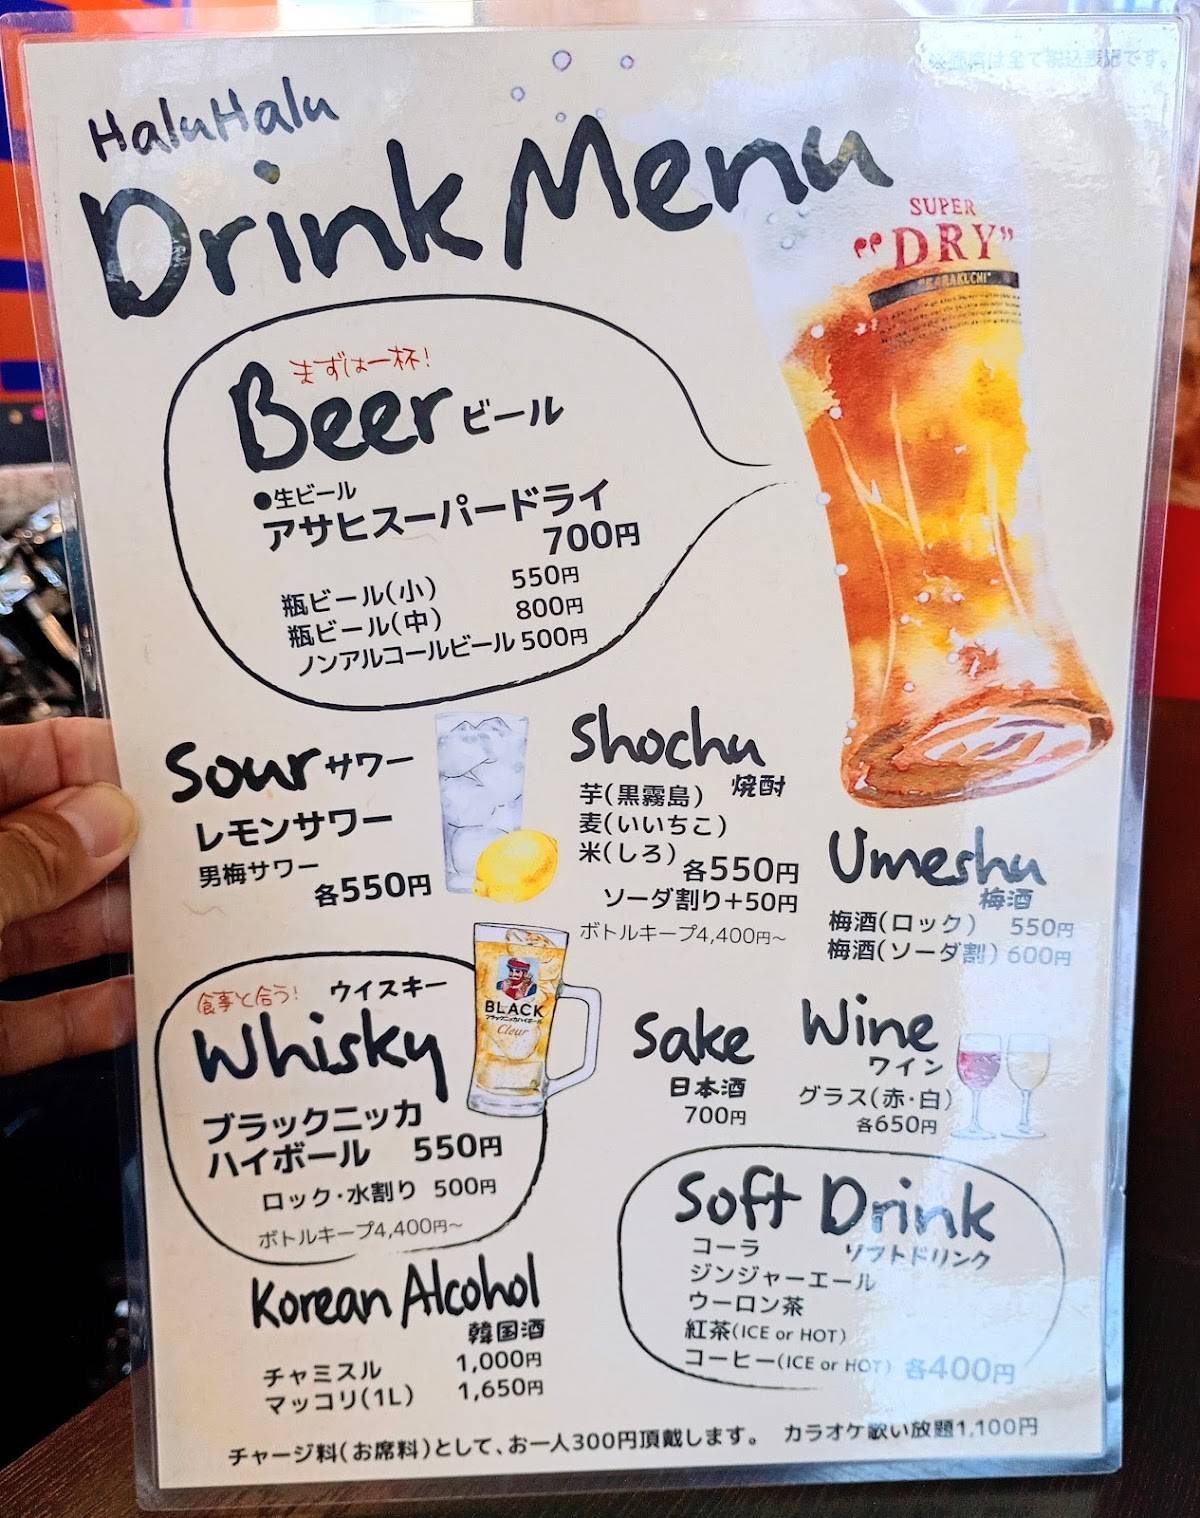 ※価格は全て税込表記です。
HaluHalu
Drink Menu
SUPER
"DRY"
"KARAKUCHI"
まずは一杯!
Beer ビール
●生ビール
アサヒスーパードライ
700円
瓶ビール(小) 550円
瓶ビール(中) 800円
ノンアルコールビール 500円
Sour サワー
レモンサワー
男梅サワー
各550円
Shochu
焼酎
芋(黒霧島)
麦(いいちこ)
米(しろ) 各550円
ソーダ割り+50円
ボトルキープ4,400円~
Umeshu
梅酒
梅酒(ロック) 550円
梅酒(ソーダ割) 600円
食事と合う! ウイスキー
Whisky
ブラックニッカ
ハイボール 550円
ロック・水割り 500円
ボトルキープ4,400円~
BLACK
ブラックニッカハイボール
Clear
Sake
日本酒
700円
Wine
ワイン
グラス(赤・白)
各650円
Korean Alcohol
韓国酒
チャミスル 1,000円
マッコリ(1L) 1,650円
Soft Drink
ソフトドリンク
コーラ
ジンジャーエール
ウーロン茶
紅茶(ICE or HOT)
コーヒー(ICE or HOT) 各400円
チャージ料(お席料)として、お一人300円頂戴します。 カラオケ歌い放題1,100円